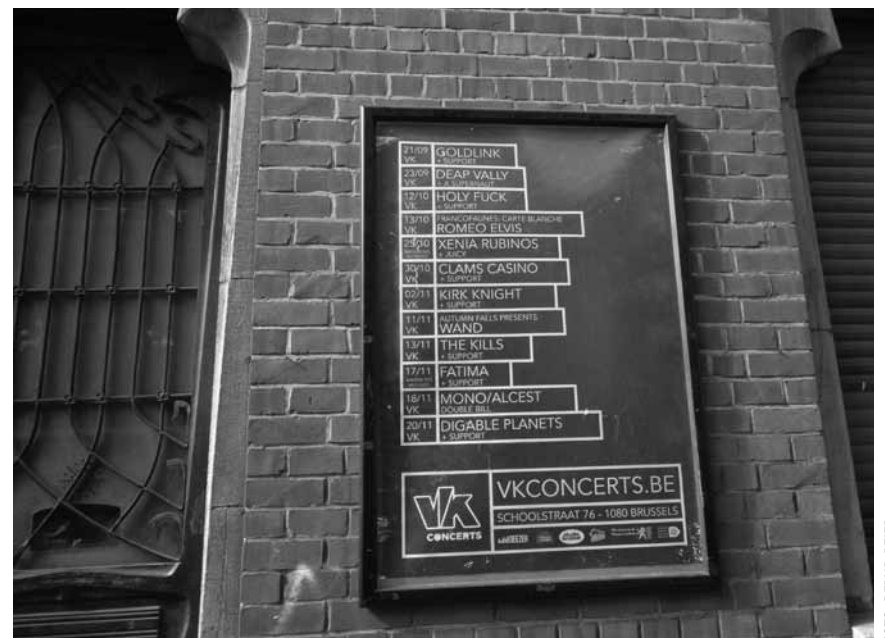 21/09 GOLDLINK
VK + SUPPORT
23/09 DEAP VALLY
VK + A SUPERNAUT
12/10 HOLY FUCK
VK + SUPPORT
13/10 FRANCOFAUNES: CARTE BLANCHE
VK ROMEO ELVIS
25/10 XENIA RUBINOS
+ JUICY
30/10 CLAMS CASINO
VK + SUPPORT
02/11 KIRK KNIGHT
VK + SUPPORT
11/11 AUTUMN FALLS PRESENTS
VK WAND
13/11 THE KILLS
VK + SUPPORT
17/11 FATIMA
+ SUPPORT
18/11 MONO/ALCEST
VK DOUBLE BILL
20/11 DIGABLE PLANETS
VK + SUPPORT
VK
CONCERTS
VKCONCERTS.BE
SCHOOLSTRAAT 76 - 1080 BRUSSELS